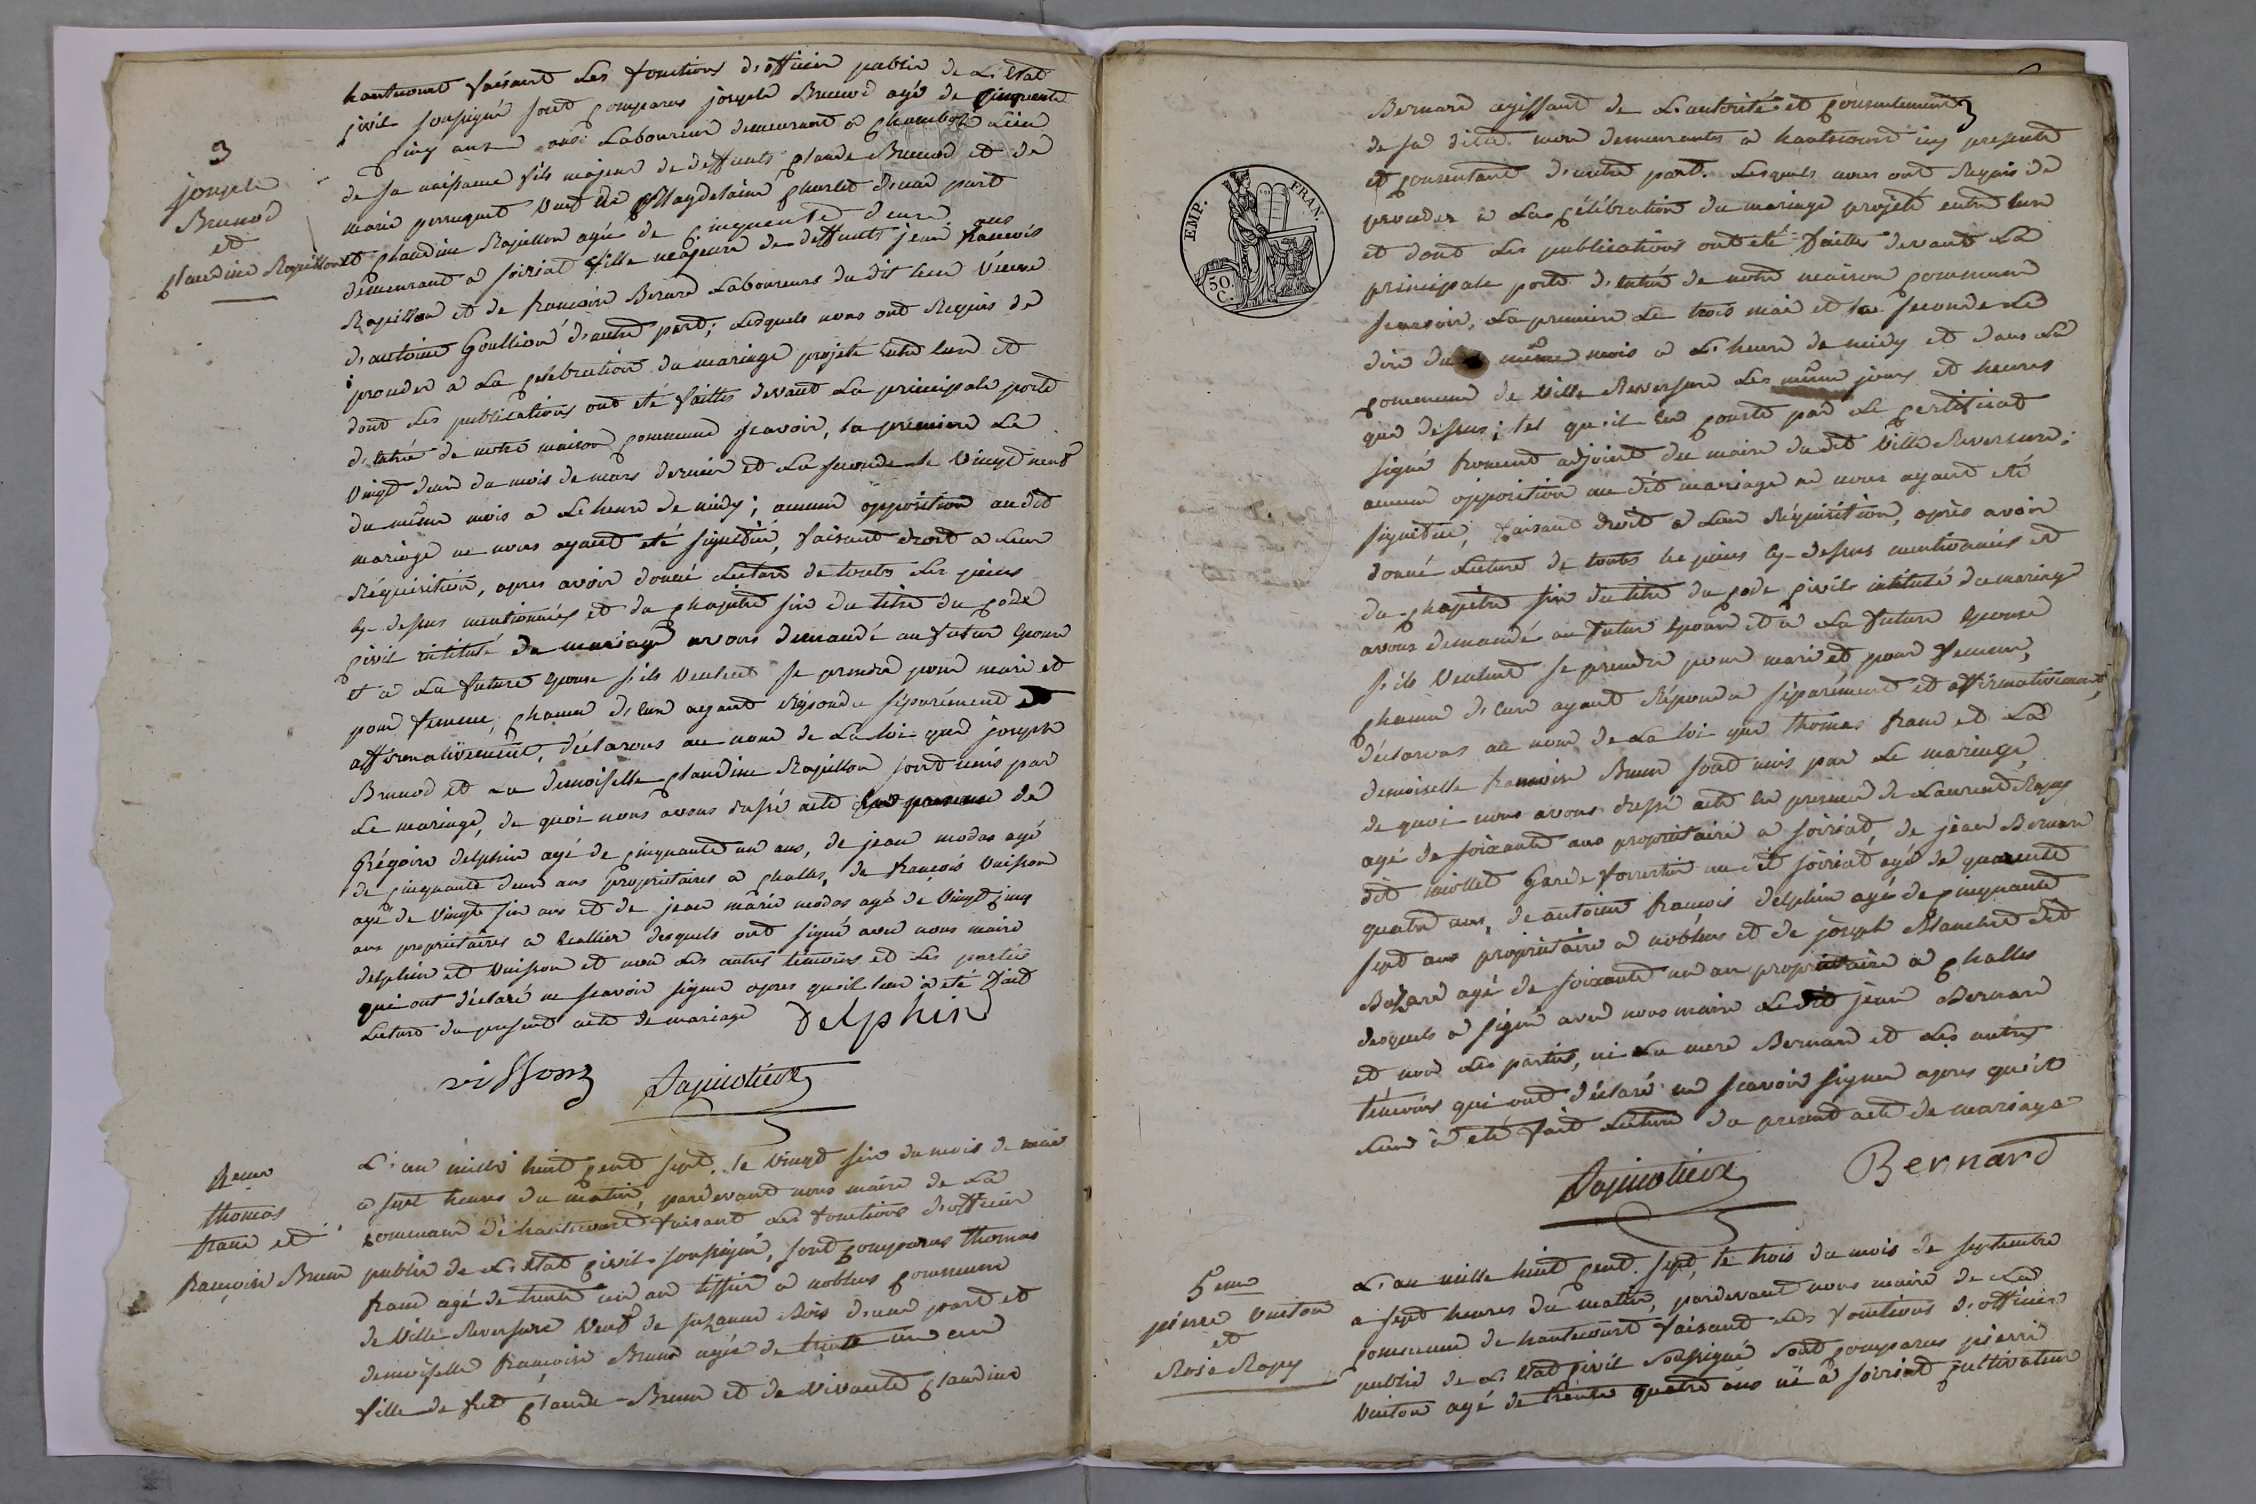 hautecourt faisant les fonctions d'officier public de l'Etat
civil soussigné sont comparus joseph Brunod agé de cinquante
cinq ans laboureur demeurant a chambod lieu
de sa naissance fils majeur de deffunts claude Brunod et de
marie perruquet veuf de Magdelaine charlet d'une part
3
joseph
Brunod
et
claudine Rapillon
et claudine Rapillon agée de cinquante deux ans
demeurant a soiriat fille majeure de deffunts jean francois
Rapillon et de francoise Bernard laboureurs du dit lieu veuve
d'antoine Goullion d'autre part; lesquels nous ont Requis de
proceder a la celebration du mariage projeté entre eux et
dont les publications ont eté faittes devant la principale porte
d'entrée de notre maison commune scavoir, la premiere le
vingt deux du mois de mars dernier et la seconde le vingt neuf
du même mois a l'heure de midy; aucune opposition audit
mariage ne nous ayant eté signifiée, faisant droit a leur
Réquisition, apres avoir donné lecture de toutes les pieces
cy-dessus mentionnées et du chapitre six du titre du code
civil intitulé du mariage avons demandé au futur epoux
et a la future epouse s'ils veulent se prendre pour mari et
pour femme, chacun d'eux ayant répondu séparément et
affirmativement, déclarons au nom de la loi que joseph
Brunod et la demoiselle claudine Rapillon sont unis par
le mariage, de quoi nous avons dressé acte en presence de
Grégoire delphin agé de cinquante un ans, de jean modas agé
de cinquante deux ans propriétaires a challes, de francois vuisson
agé de vingt six ans et de jean marie modas agé de vingt cinq
ans propriétaires a desquels ont signé avec nous maire
delphin et vuisson et non les autres témoins et les parties
qui ont déclaré ne scavoir signer apres qu'il leur a eté fait
lecture du present acte de mariage Delphin
vissons Papinolieux
thomas
franc et
francoise Brun
L'an mille huit cent sept, le vingt six du mois de mai
a sept heures du matin, pardevant nous maire de la
commune de hautecourt faisant les fonctions d'officier
public de l'Etat civil soussigné, sont comparus thomas
franc agé de trente un an tissier a nobles commune
de ville Reversure veuf de suzanne Bois d'une part et
demoiselle francoise Brun agée de trente un an
fille de feu claude Brun et de vivante claudine
Bernard agissant de l'autorité et consentement
de sa dite mere demeurantes a hautecourt icy presente
et consentante d'autre part. Lesquels nous ont Requis de
proceder a la célébration du mariage projeté entre eux
et dont les publications ont eté faittes devant la
principale porte d'entrée de notre maison commune
scavoir, la premiere le trois mai et la seconde le
dix du même mois a l'heure de midy et dans la
commune de ville Reversure les même jours et heures
que dessus; tel qu'il en conste par le certificat
signé froment adjoint du maire du dit ville Reversure;
aucune opposition au dit mariage ne nous ayant eté
signifiée, faisant droit a leur Réquisition, après avoir
donné lecture de toutes les pieces cy-dessus mentionnées et
du chapitre six du titre du code civil intitulé du mariage
avons demandé au futur epoux et a la future epouse
s'ils veulent se prendre pour mari et pour femme,
chacun d'eux ayant répondu séparément et affirmativement,
déclarons au nom de la loi que thomas franc et la
demoiselle francoise Brun sont unis par le mariage,
de quoi nous avons dressé acte en presence de Laurent Ropy
agé de soixante ans propriétaire a soiriat, de jean Bernard
dit miollet Garde forestier au dit soiriat agé de quarente
quatre ans, de antoine francois delphin agé de cinquante
sept ans propriétaire a nobles et de joseph Blanchet dit
Bozard agé de soixante un an propriétaire a challes
desquels a signé avec nous maire le dit jean Bernard
et non les parties, ni la mere Bernard et les autres
témoins qui ont déclaré ne scavoir signer apres qu'il
leur a eté fait lecture du present acte de mariage
Papinolieux Bernard
EMP. FRAN.
50
C.
5eme
pierre vuiton
et
Rose Ropy
L'an mille huit cent sept, le trois du mois de septembre
a sept heures du matin, pardevant nous maire de la
commune de hautecourt faisant les fonctions d'officier
public de l'Etat civil soussigné sont comparus pierre
vuiton agé de trente quatre ans né a soiriat cultivateur